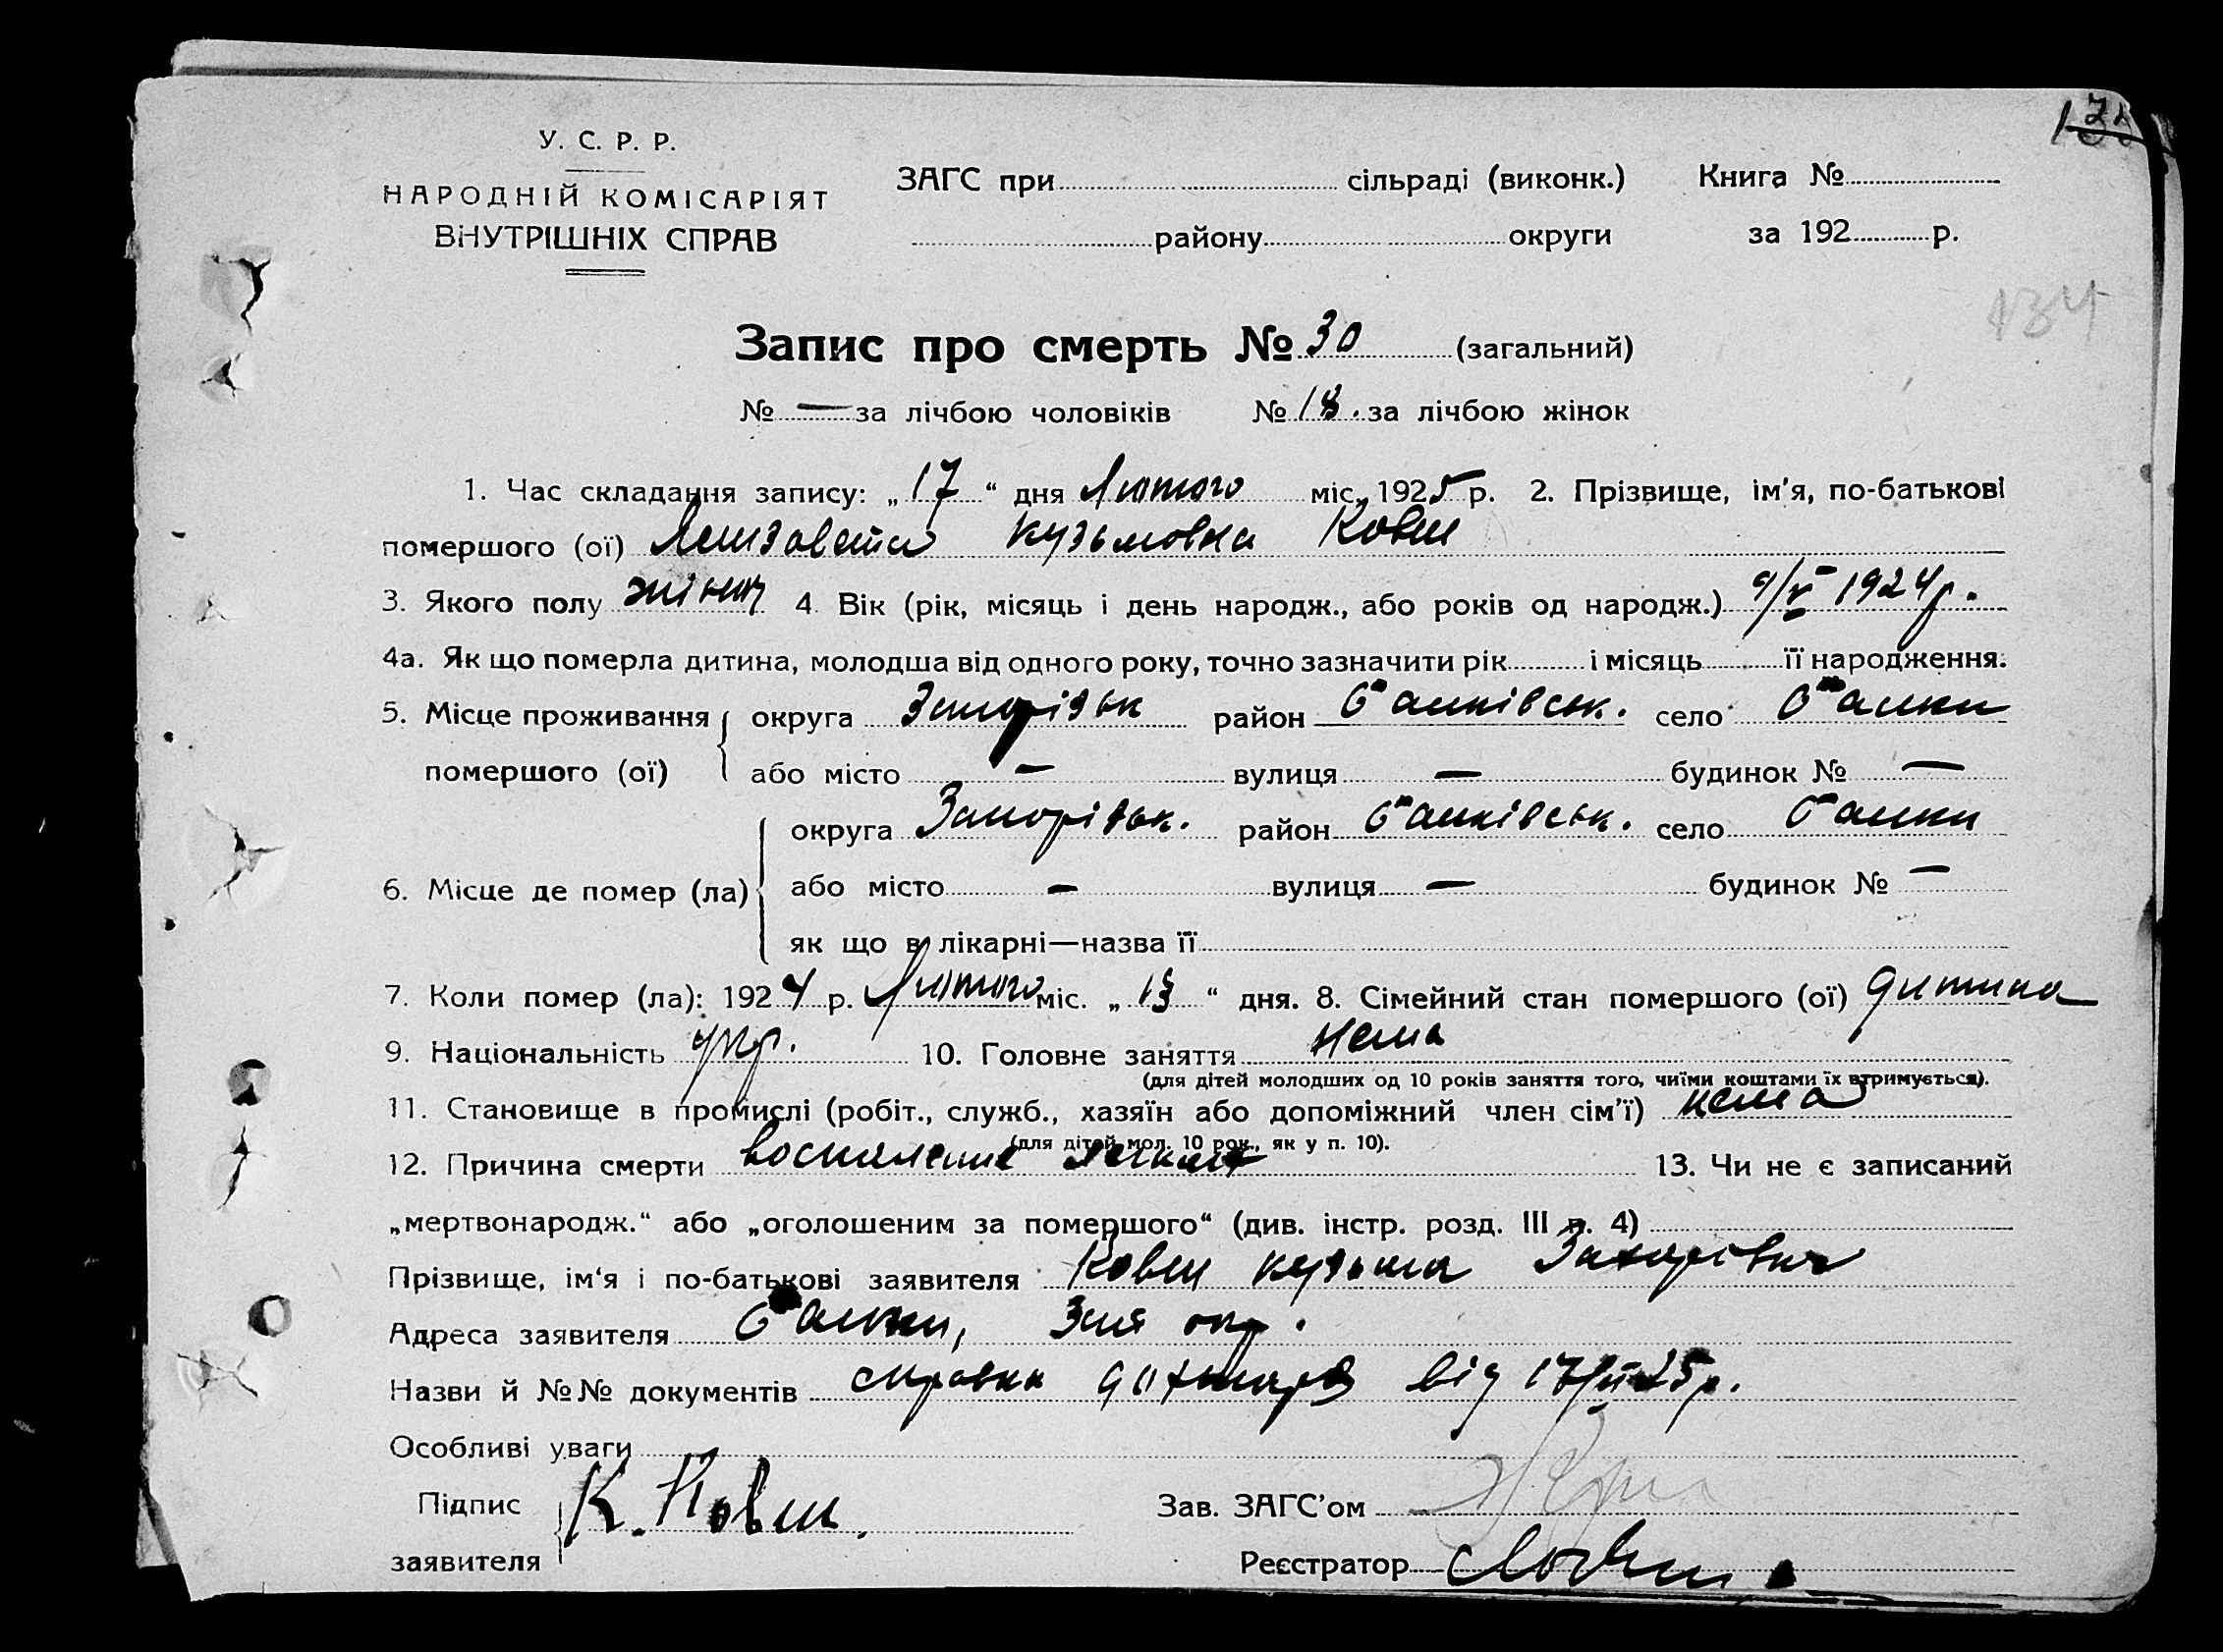 У. С. Р. Р.
НАРОДНІЙ КОМІСАРІЯТ
ВНУТРІШНІХ СПРАВ
ЗАГС при сільраді (виконк.) Книга №
району округи за 192 р.
134
Запис про смерть № 30 (загальний)
№ — за лічбою чоловіків № 18. за лічбою жінок
1. Час складання запису: „17“ дня Лютого міс. 1925 р. 2. Прізвище, ім'я, по-батькові
помершого (ої) Лизавета Кузьмовна Ковш
3. Якого полу жіноч 4. Вік (рік, місяць і день народж., або років од народж.) 9/V 1924 р.
4а. Як що померла дитина, молодша від одного року, точно зазначити рік і місяць її народження.
5. Місце проживання округа Запорізьк район Балківськ. село Балки
помершого (ої) або місто — вулиця — будинок № —
округа Запорізьк. район Балківськ. село Балки
6. Місце де помер (ла) або місто — вулиця — будинок № —
як що в лікарні—назва її
7. Коли помер (ла): 1924 р. Лютого міс. „13“ дня. 8. Сімейний стан помершого (ої) дитина
9. Національність укр. 10. Головне заняття нема
(для дітей молодших од 10 років заняття того, чиїми коштами їх втримується).
11. Становище в промислі (робіт., служб., хазяїн або допоміжний член сім'ї) нема
(для дітей мол. 10 рок., як у п. 10).
12. Причина смерти воспаление легких 13. Чи не є записаний
„мертвонародж.“ або „оголошеним за помершого“ (див. інстр. розд. III п. 4)
Прізвище, ім'я і по-батькові заявителя Ковш Кузьма Захарович
Адреса заявителя Балки, Зап окр.
Назви й №№ документів справка від 17/II 25 р.
Особливі уваги
Підпис К. Ковш. Зав. ЗАГС'ом
заявителя Реєстратор